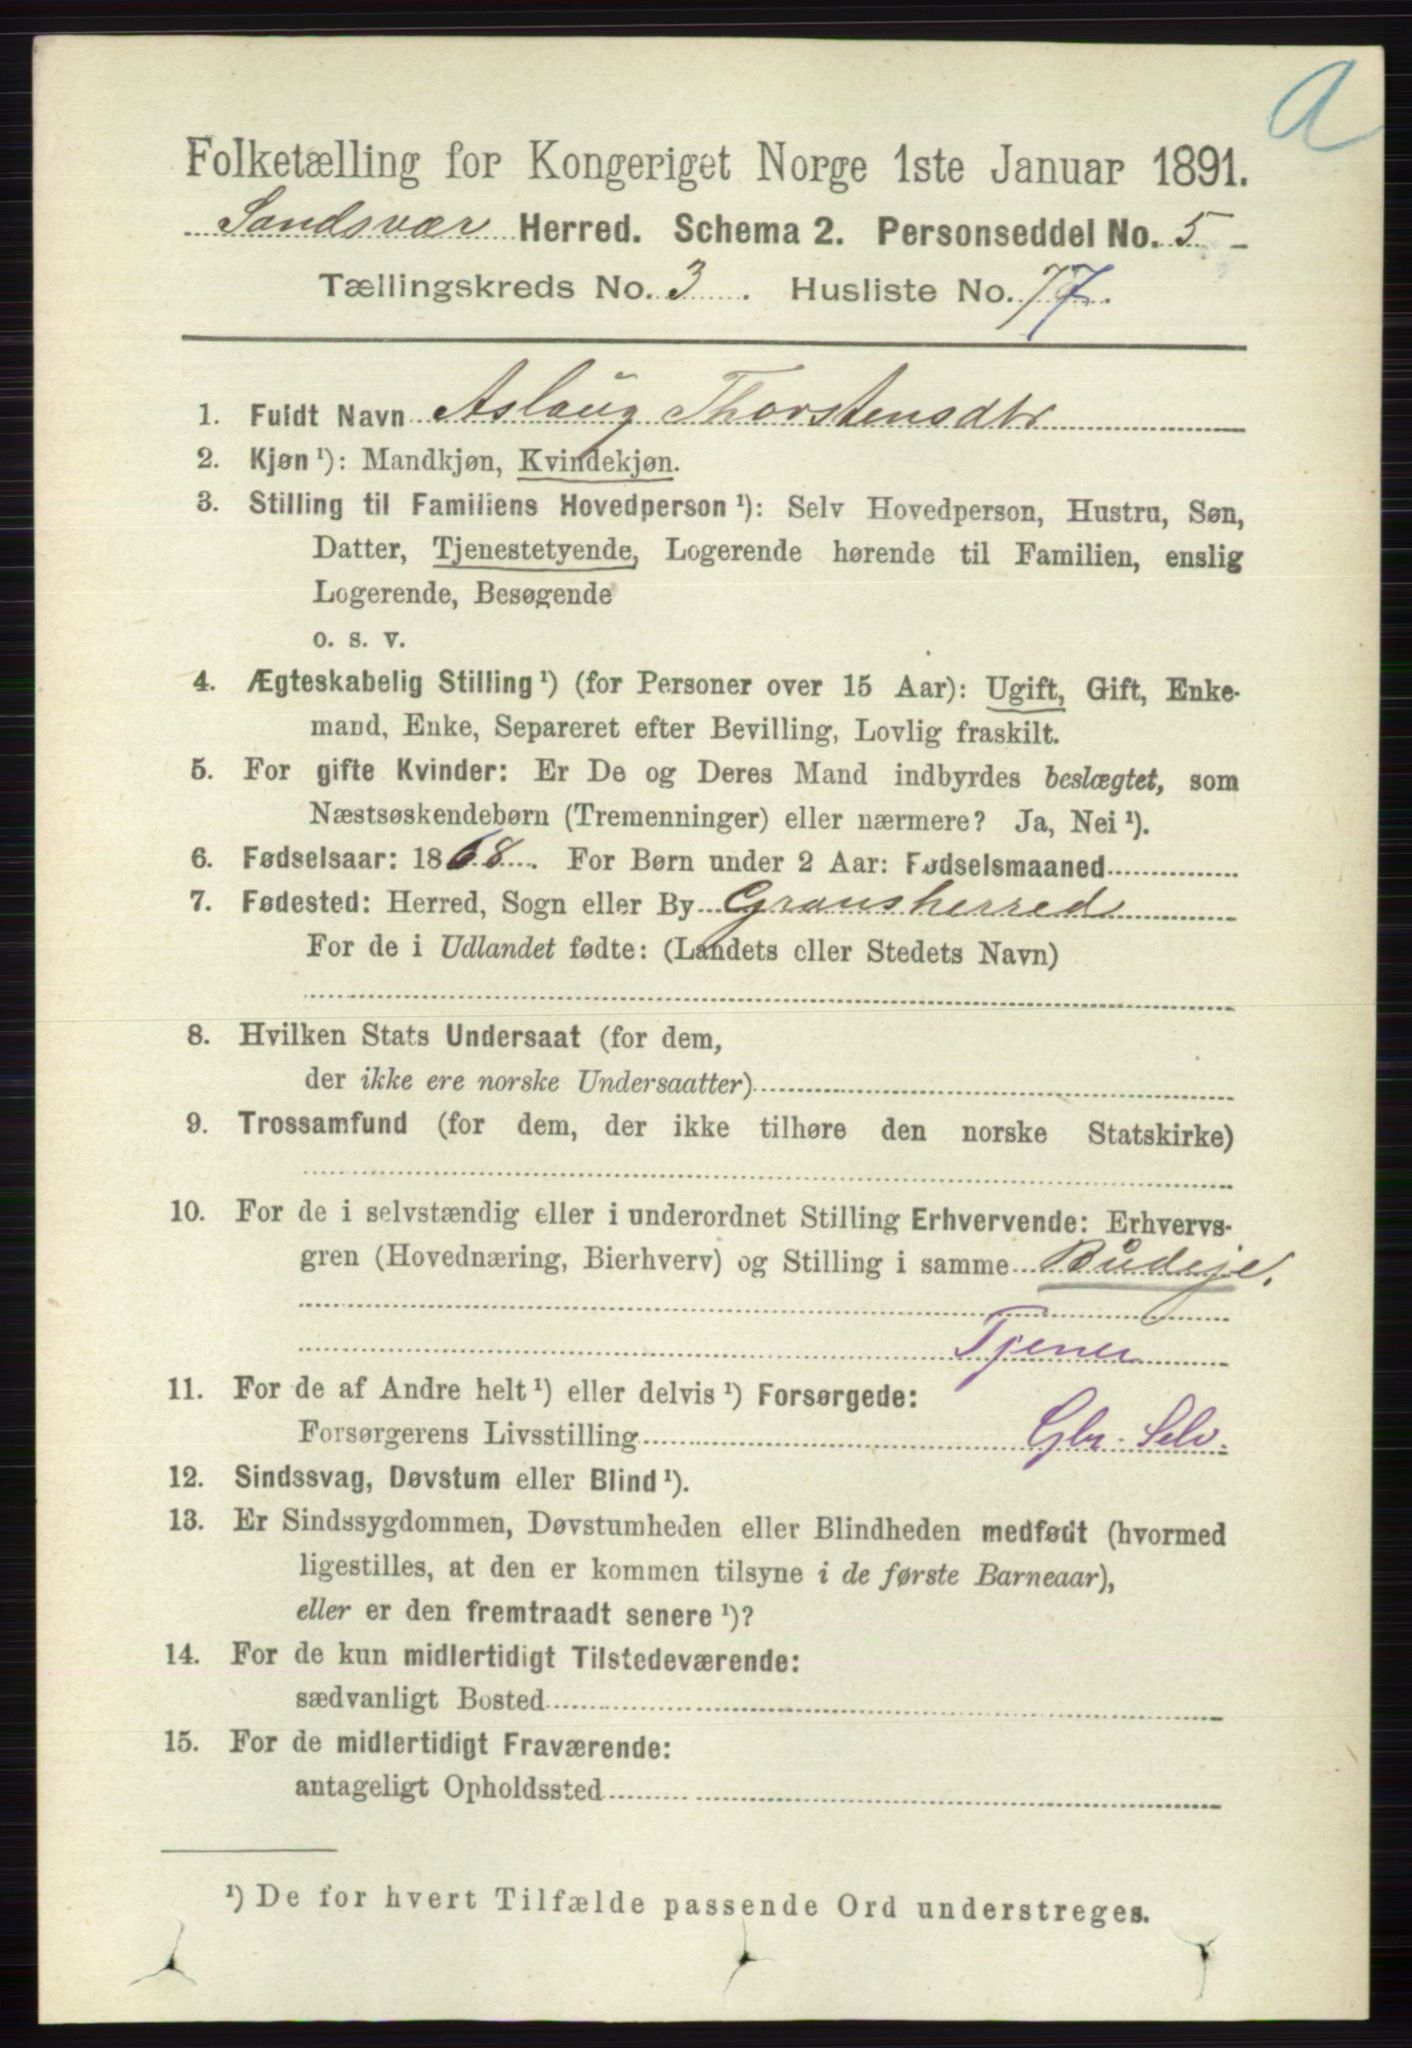 a
Folketælling for Kongeriget Norge 1ste Januar 1891.
Sandsvær Herred. Schema 2. Personseddel No. 5
Tællingskreds No. 3. Husliste No. 77.
1. Fuldt Navn Aslaug Thorstensdtr
2. Kjøn ¹): Mandkjøn, Kvindekjøn.
3. Stilling til Familiens Hovedperson ¹): Selv Hovedperson, Hustru, Søn,
Datter, Tjenestetyende, Logerende hørende til Familien, enslig
Logerende, Besøgende
o. s. v.
4. Ægteskabelig Stilling ¹) (for Personer over 15 Aar): Ugift, Gift, Enke-
mand, Enke, Separeret efter Bevilling, Lovlig fraskilt.
5. For gifte Kvinder: Er De og Deres Mand indbyrdes beslægtet, som
Næstsøskendebørn (Tremenninger) eller nærmere? Ja, Nei ¹).
6. Fødselsaar: 1868. For Børn under 2 Aar: Fødselsmaaned
7. Fødested: Herred, Sogn eller By Gransherred
For de i Udlandet fødte: (Landets eller Stedets Navn)
8. Hvilken Stats Undersaat (for dem,
der ikke ere norske Undersaatter)
9. Trossamfund (for dem, der ikke tilhøre den norske Statskirke)
10. For de i selvstændig eller i underordnet Stilling Erhvervende: Erhvervs-
gren (Hovednæring, Bierhverv) og Stilling i samme Budeje.
Tjener
11. For de af Andre helt ¹) eller delvis ¹) Forsørgede:
Forsørgerens Livsstilling Gbr. Selv.
12. Sindssvag, Døvstum eller Blind ¹).
13. Er Sindssygdommen, Døvstumheden eller Blindheden medfødt (hvormed
ligestilles, at den er kommen tilsyne i de første Barneaar),
eller er den fremtraadt senere ¹)?
14. For de kun midlertidigt Tilstedeværende:
sædvanligt Bosted
15. For de midlertidigt Fraværende:
antageligt Opholdssted
¹) De for hvert Tilfælde passende Ord understreges.